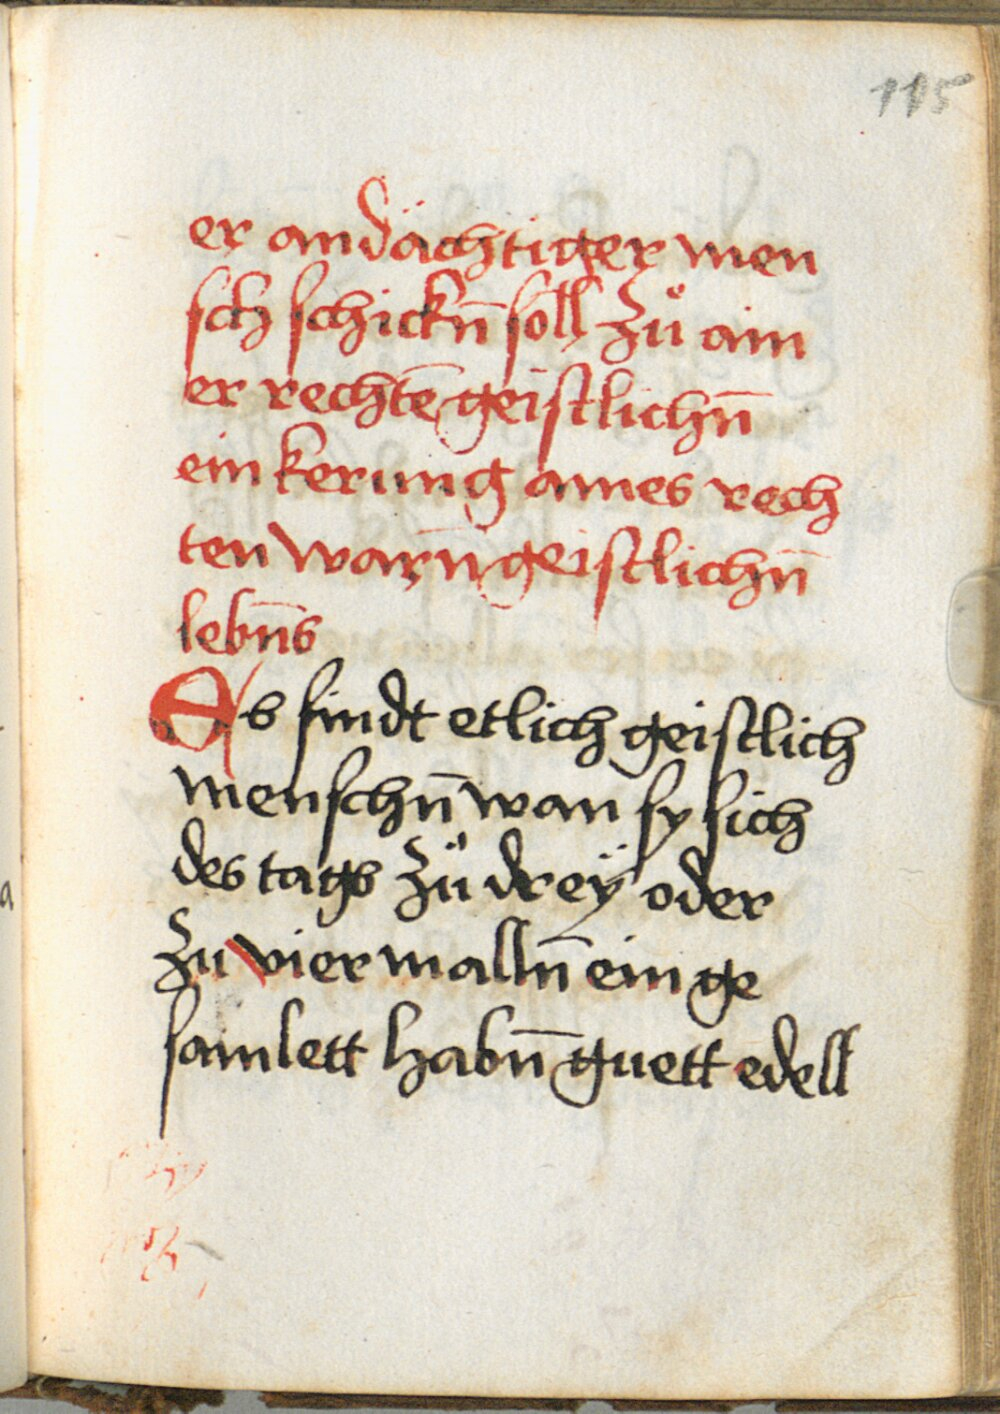 115
er andächtiger men
sch schickn̄ soll zů ain
er rechtē geistlichn̄
ein kerung aines rech
ten warn̄ geistlichn̄
lebn̄s
Es sindt etlich geistlich
menschn̄ wan sy sich
des tags zů dreÿ oder
zu vier malln̄ ein ge
samlett habn̄ guett edell